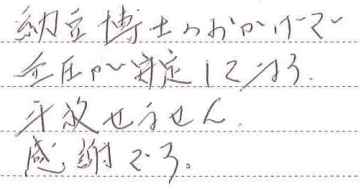 納豆博士のおかげで
血圧が安定している。
手放せません。
感謝です。